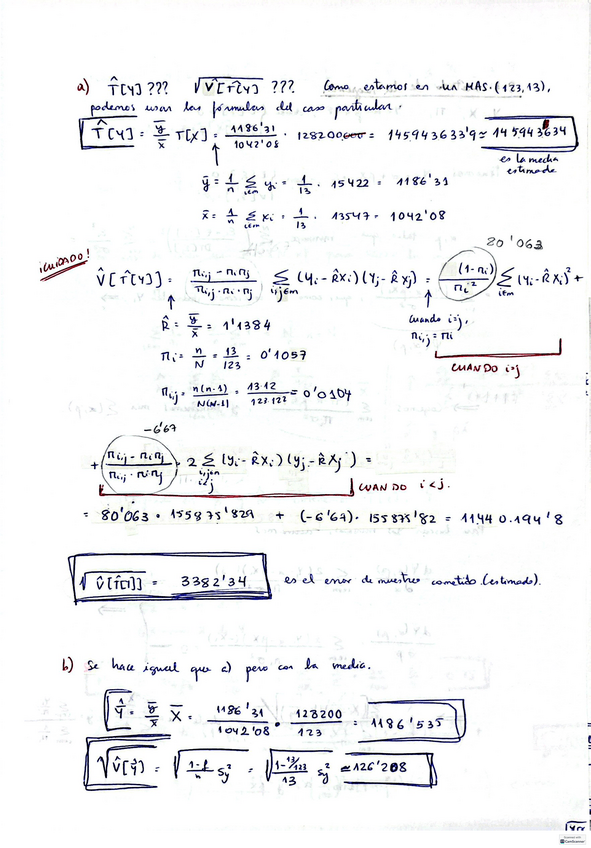 a) T̂[Y] ??? √V̂[T̂[Y]] ??? Como estamos en un MAS.(123,13),
podemos usar las fórmulas del caso particular.
T̂[Y] = ȳ/x̄ T[X] = 1186'31/1042'08 · 128200 = 145943633'9 ≃ 145943634
es la media
estimada
ȳ = 1/n Σ_{i∈m} yi = 1/13 · 15422 = 1186'31
x̄ = 1/n Σ_{i∈m} xi = 1/13 · 13547 = 1042'08
¡CUIDADO!
20'063
V̂[T̂[Y]] = (πi,j - πiπj)/(πi,j·πi·πj) Σ_{i,j∈m} (yi - R̂xi)(yj - R̂xj) = (1-πi)/πi² Σ_{i∈m} (yi - R̂xi)² +
R̂ = ȳ/x̄ = 1'1384
cuando i=j,
πi,j = πi
πi = n/N = 13/123 = 0'1057
CUANDO i=j
πi,j = n(n-1)/N(N-1) = 13·12/123·122 = 0'0104
-6'67
+ (πi,j - πiπj)/(πi,j·πi·πj) · 2 Σ_{i,j∈m i<j} (yi - R̂xi)(yj - R̂xj) =
CUANDO i<j.
= 80'063 · 155875'829 + (-6'67) · 155875'82 = 11440.194'8
√V̂[T̂[Y]] = 3382'34 es el error de muestreo cometido (estimado).
b) Se hace igual que a) pero con la media.
Ȳ̂ = ȳ/x̄ X̄ = 1186'31/1042'08 · 128200/123 = 1186'535
√V̂[ŷ] = √(1-f)/n Sy² = √(1-13/123)/13 Sy² ≃ 126'208
CamScanner